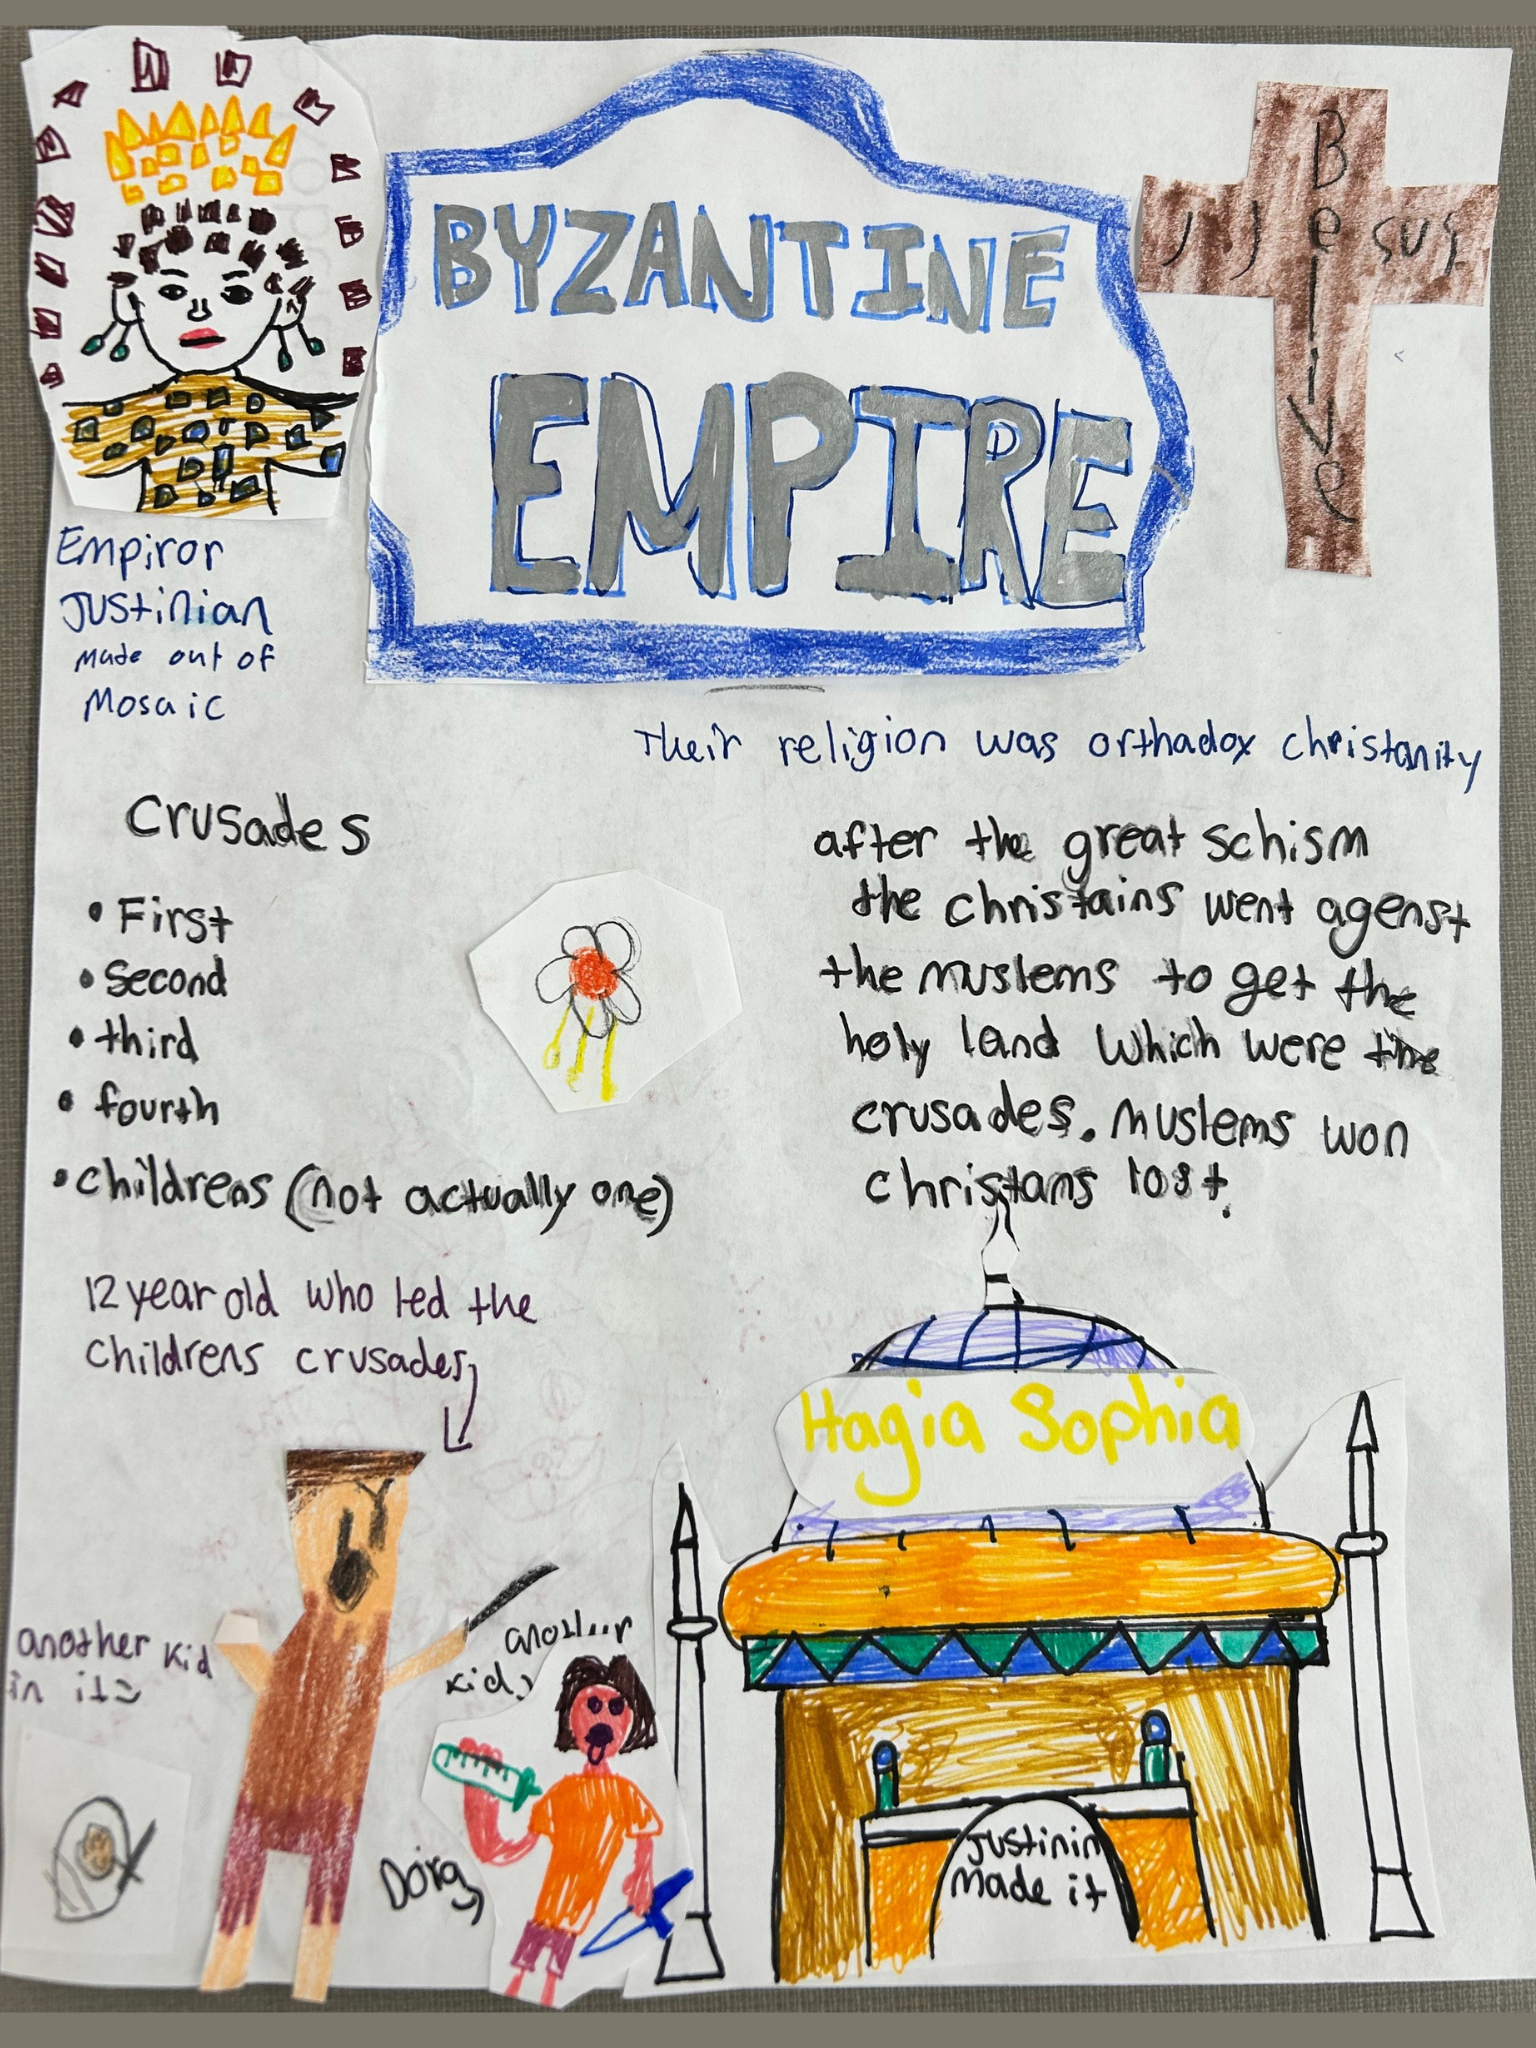 BYZANTINE
EMPIRE
Belive
Jesus
Empiror
Justinian
Made out of
Mosaic
Their religion was orthadox christanity
Crusades
• First
• Second
• third
• fourth
• childrens (not actually one)
after the great schism
the christains went agenst
the muslems to get the
holy land which were the
crusades. muslems won
christans lost.
12 year old who led the
childrens crusades
Hagia Sophia
another kid
in it
another
kid
Justinin
Made it